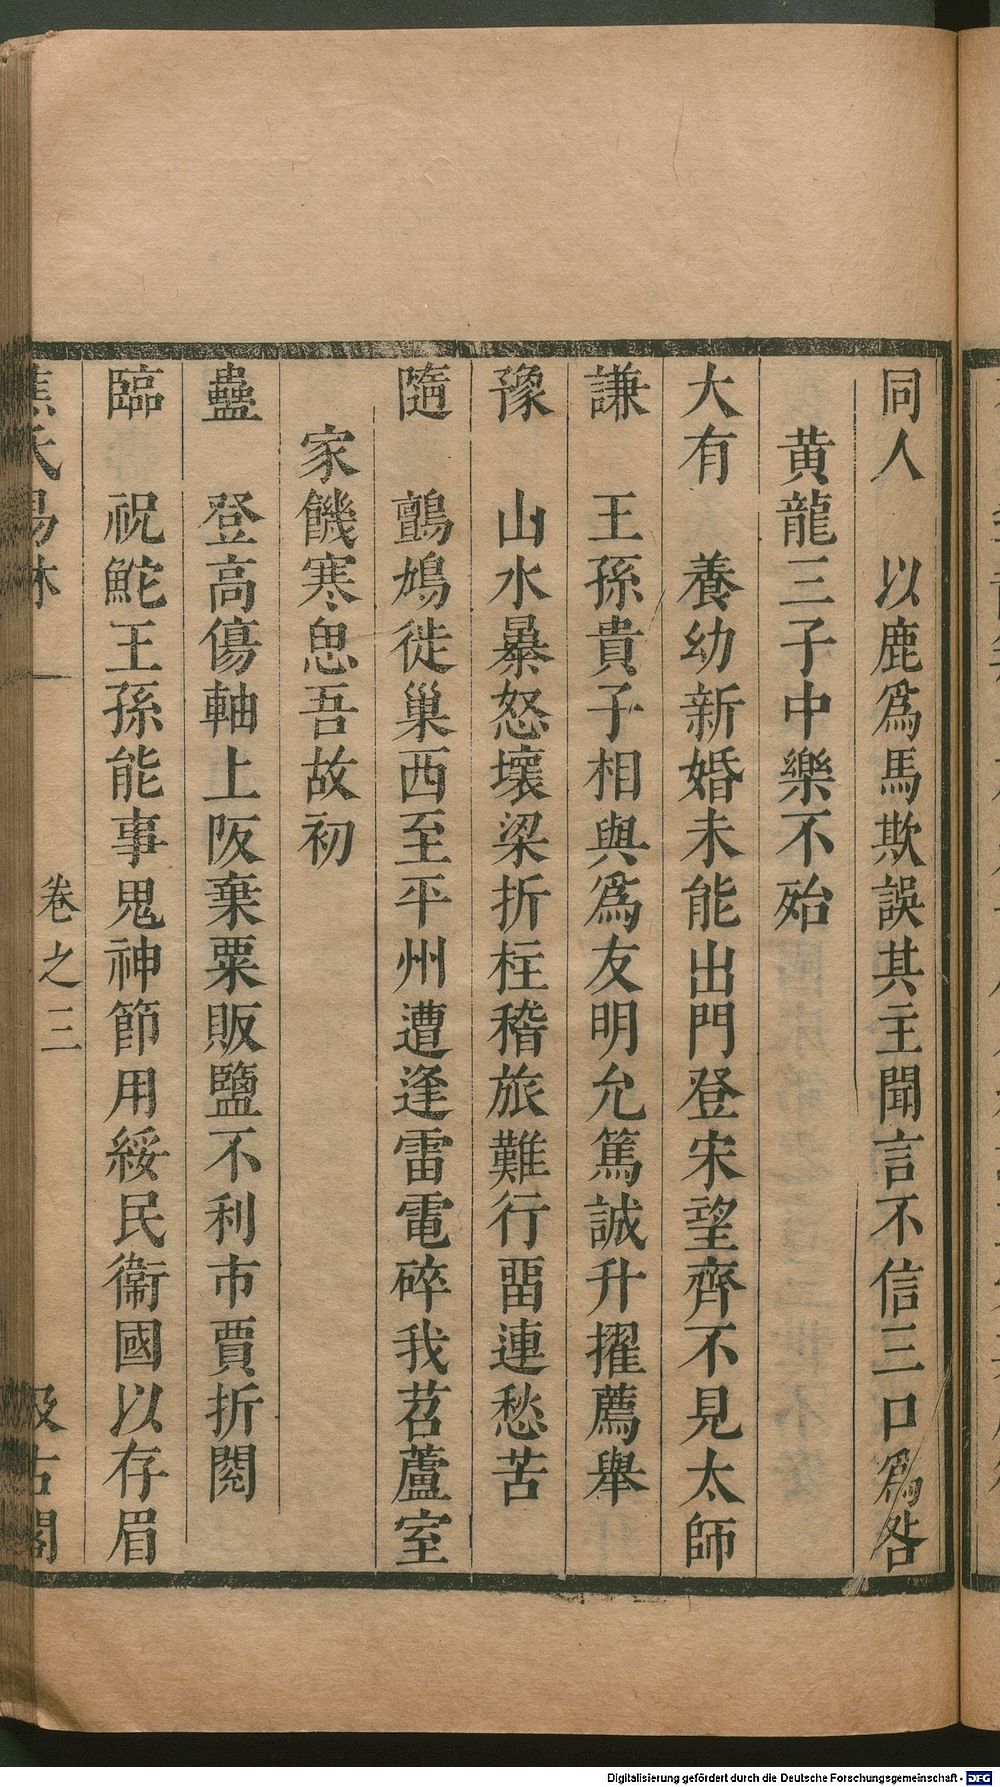 同人　以鹿爲馬欺誤其主聞言不信三口爲咎
黄龍三子中樂不殆
大有　養幼新婚未能出門登宋望齊不見太師
謙　王孫貴子相與爲友明允篤誠升擢薦舉
豫　山水暴怒壞梁折柱稽旅難行畱連愁苦
隨　鸇鳩徙巢西至平州遭逢雷電碎我苕蘆室
家饑寒思吾故初
蠱　登高傷軸上阪棄粟販鹽不利市賈折閱
臨　祝鮀王孫能事鬼神節用綏民衞國以存眉
焦氏易林　卷之三　汲古閣
Digitalisierung gefördert durch die Deutsche Forschungsgemeinschaft - DFG